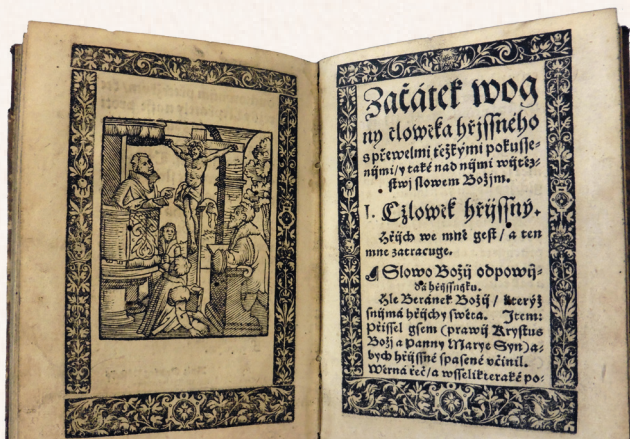 Začátek wog
ny cloweka hřjssného
s přewelmi těžkými pokusse-
nijmi / y také nad nijmi wijtěz-
stwj slowem Božjm.
I. Cžlowěk hřijssný.
Hřijch we mně gest / a ten
mne zatracuge.
Slowo Božij odpowij-
dá hřijssnijku.
Hle Beránek Božij / kterýž
snijmá hřijchy swěta. Item:
Přissel gsem (prawij Krystus
Božj a Panny Marye Syn) a-
bych hřijssné spasené včinil.
Wěrná řeč / a wsselikteraké po-